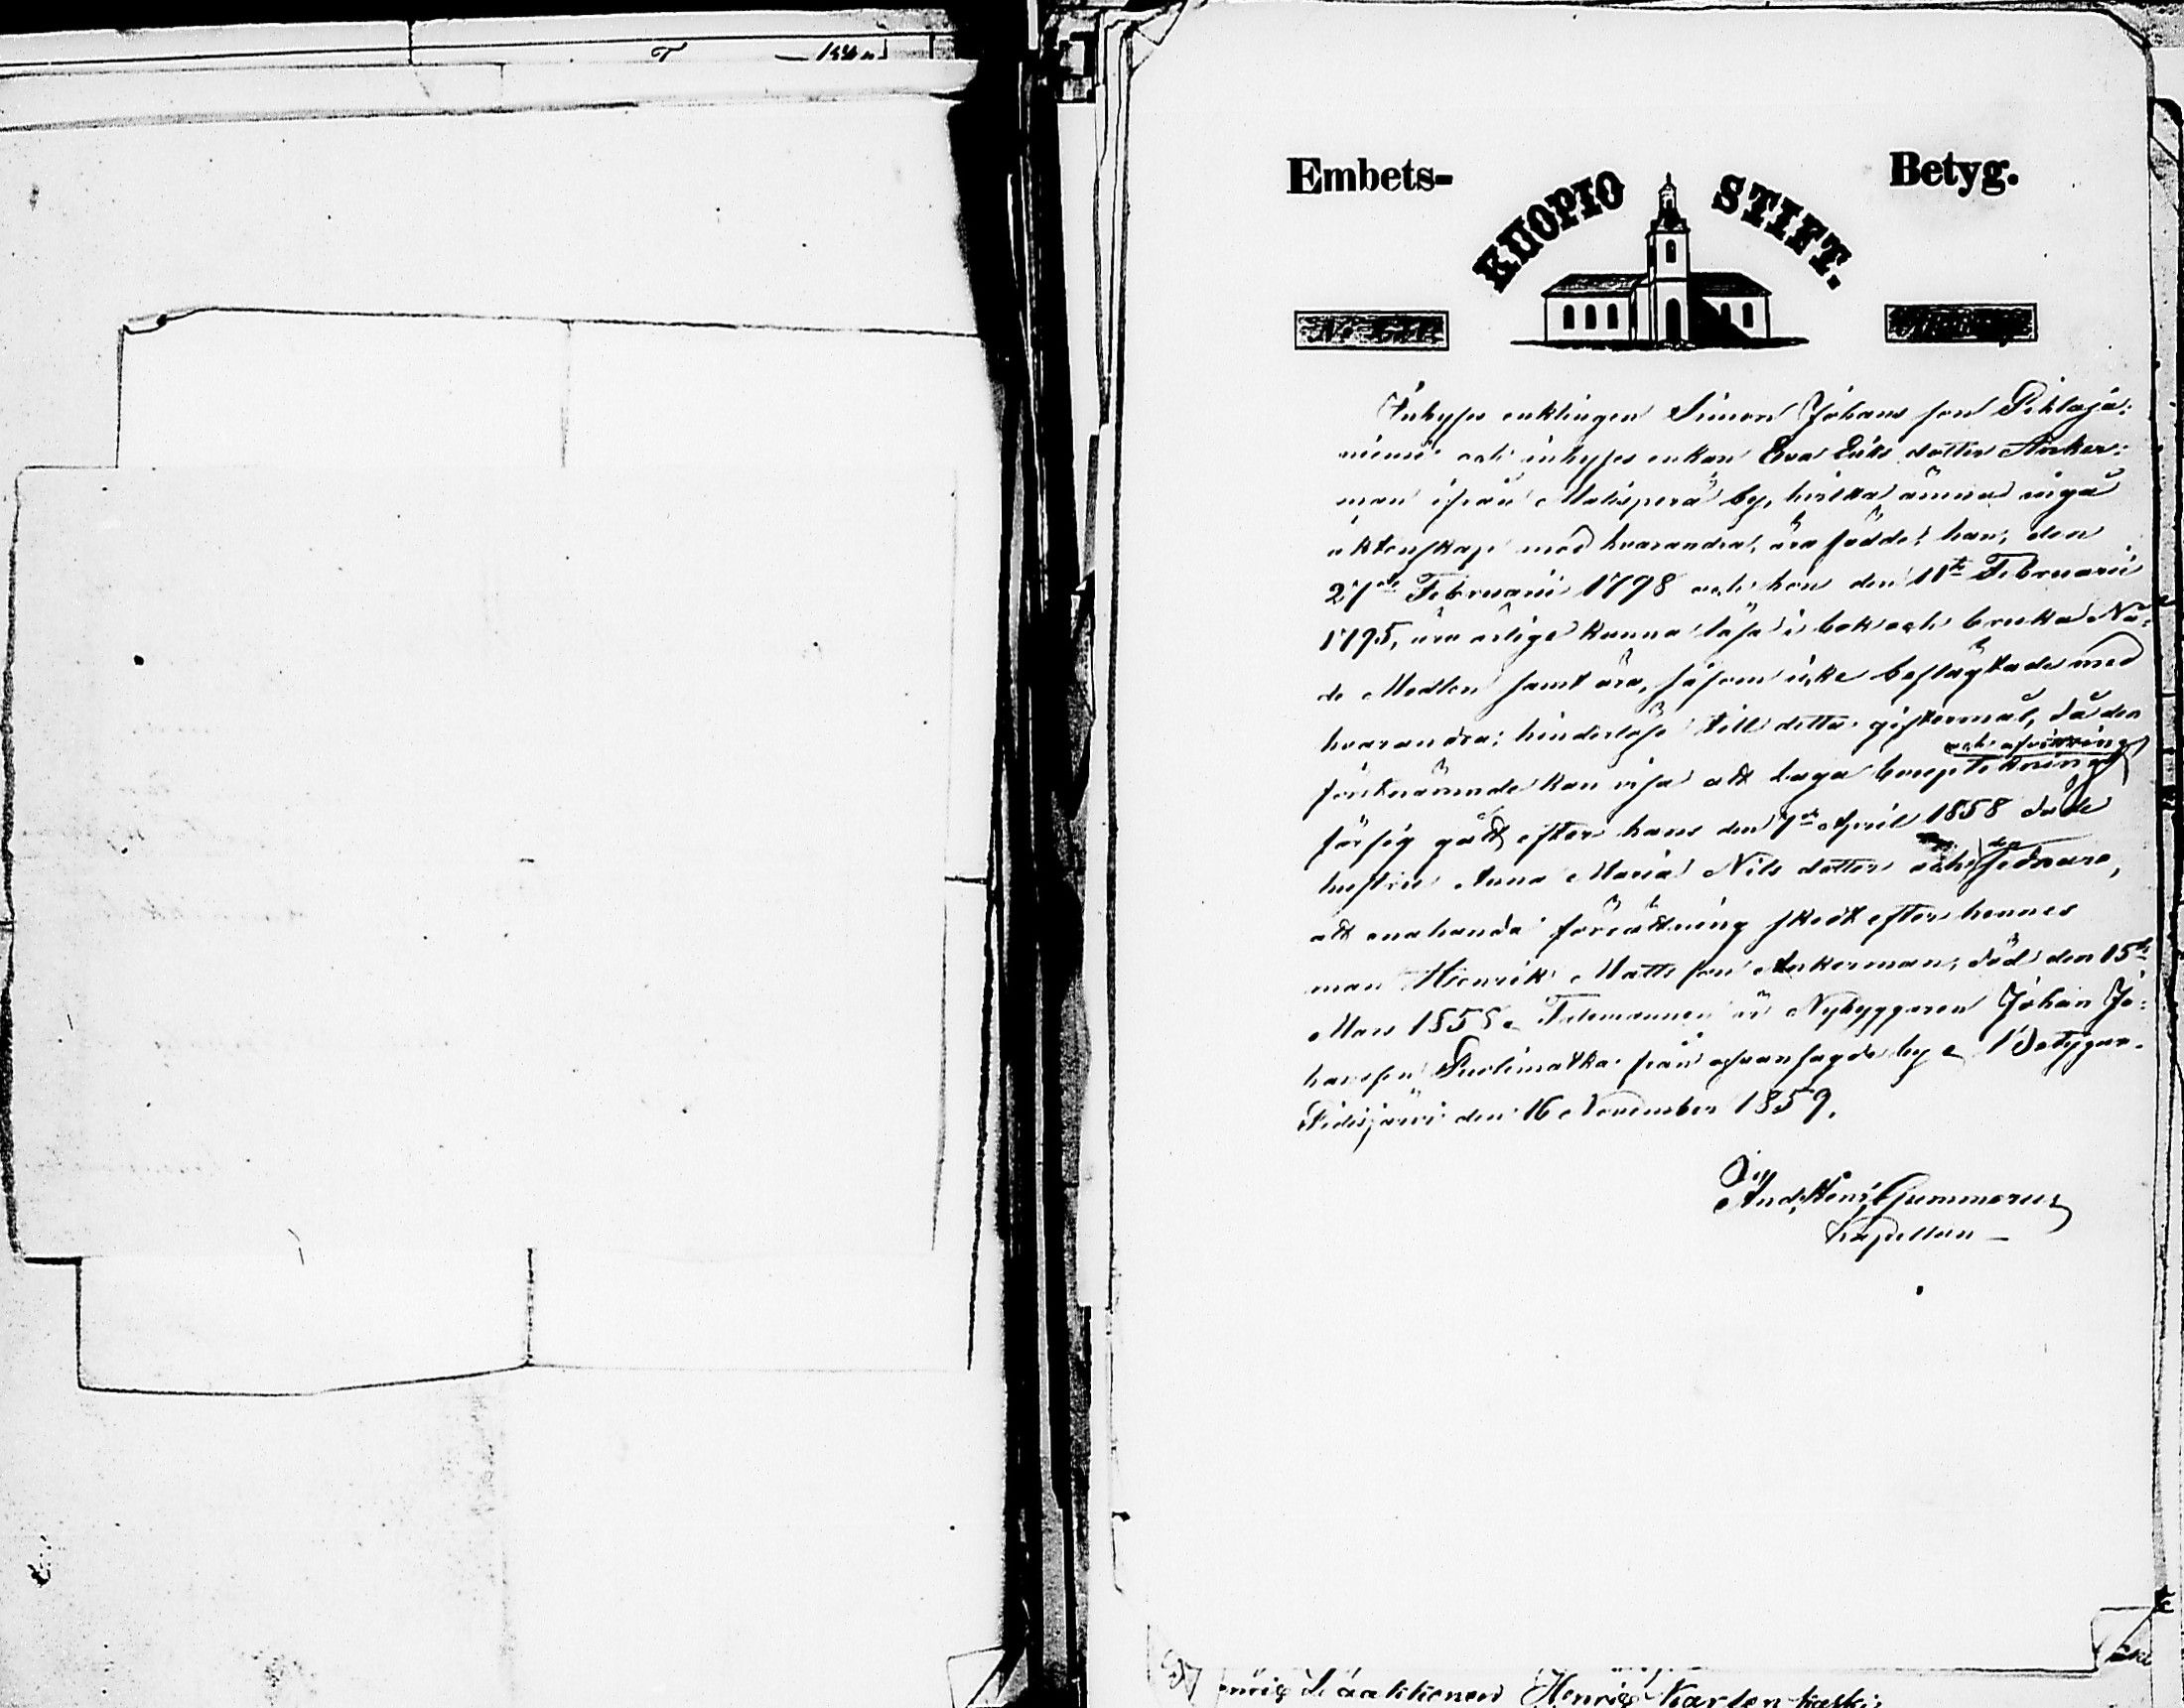 Embets- Betyg.
KUOPIO STIFT.
Inhyses enklingen Simon Johans son Pihlaja:
niemi och inhyses enkan Eva Eriks dotter Anker:
man ifrån Matisperä by, hvilka ämna ingå
äktenskap med hvarandra, äro födde: han, den
27de Februarii 1798 och hon den 11te Februarii
1795, äro ärlige kunna läsa i bok och bruka Nå:
de Medlen samt äro, såsom icke beslägtade med
hvarandra: hinderlöse till detta giftermål, då den
och afvittring
förstnämnde kan visa att laga bouptekning
försig gått efter hans den 7de April 1858 döde
hustru Anna Maria Nils dotter och den sednare,
att enahanda förrättning skedt efter hennes
man Henrik Matts son Ankerman, död den 15de
Mars 1855. Talemannen är Nybyggaren Johan Jo:
hansson Puolimatka från ofvansagde by. Betygar.
Pidisjärvi den 16 November 1859.
And. Henr. Gummerus
Kapellan